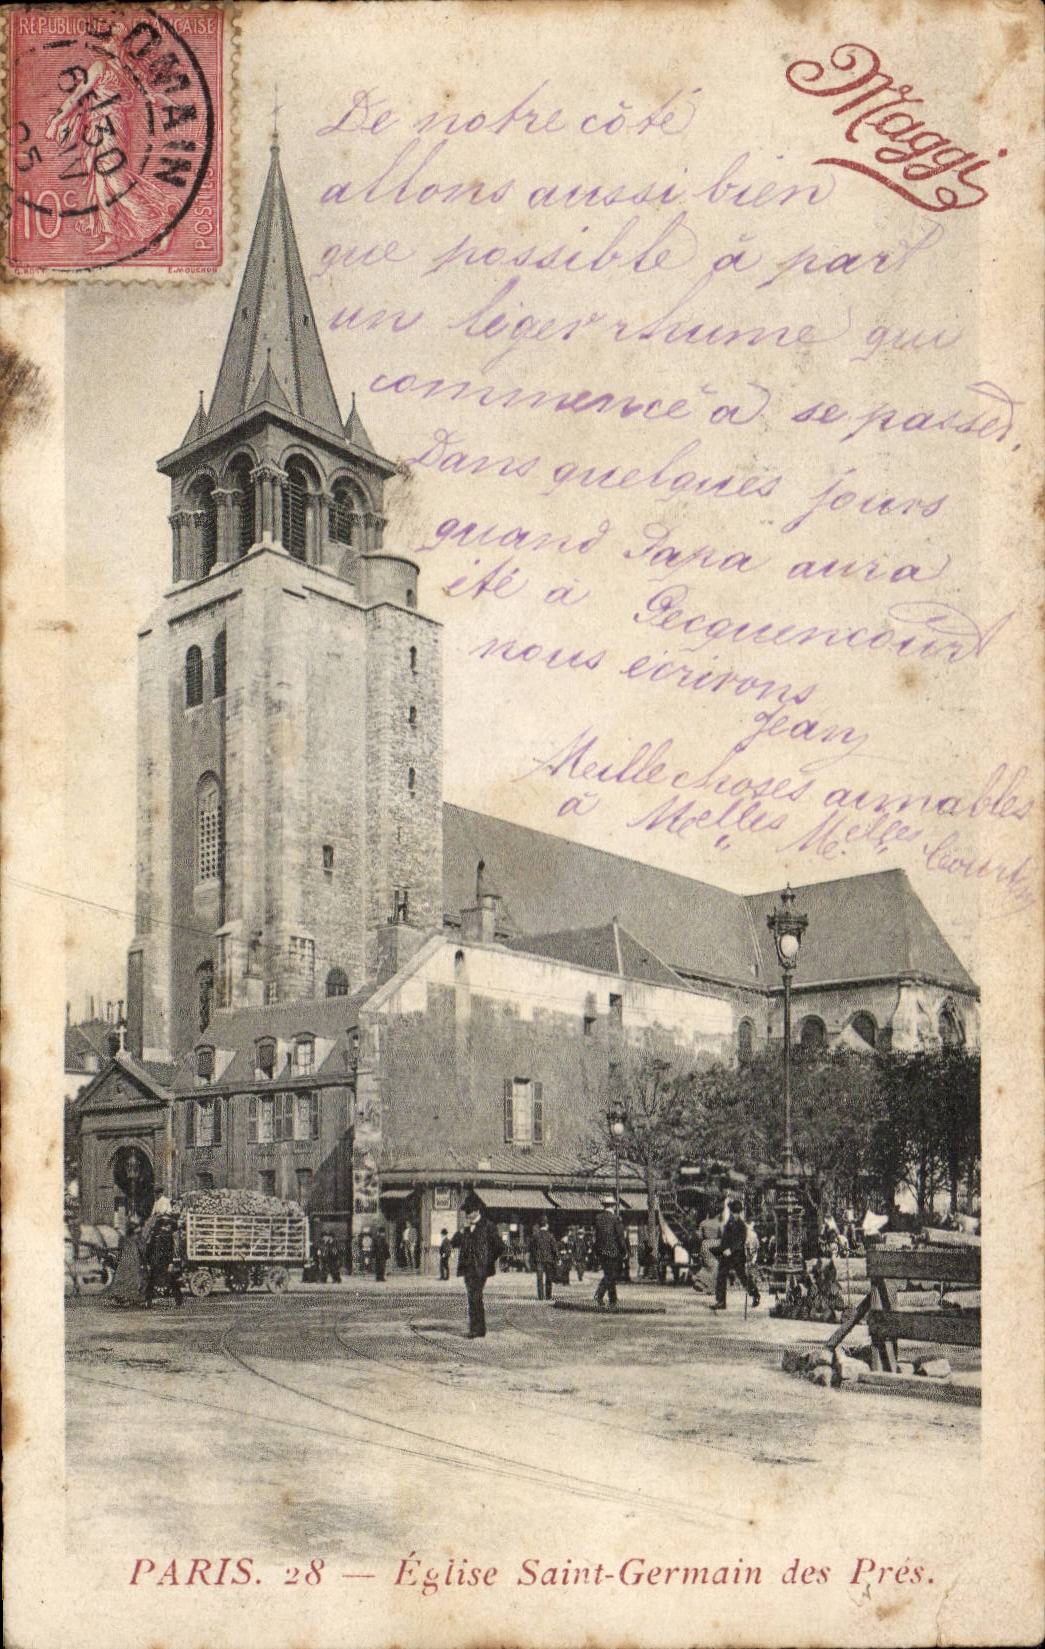 RÉPUBLIQUE FRANÇAISE
OMAIN
6
1 30
05
10 c
POSTES
E. MOUCHON
Maggi
De notre côté
allons aussi bien
que possible à part
un léger rhume qui
commence à se passer.
Dans quelques jours
quand Papa aura
été à Pecquencourt
nous écrirons
Jean
Meille choses aimables
à Melles Melles
PARIS. 28 — Église Saint-Germain des Prés.